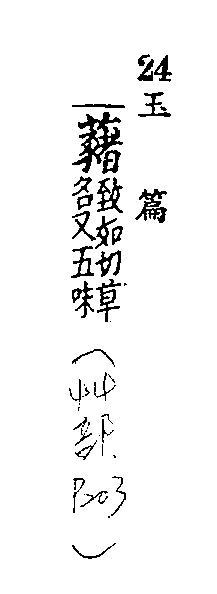 24玉 篇
一藸致如切草名又五味
(艸部 P203)